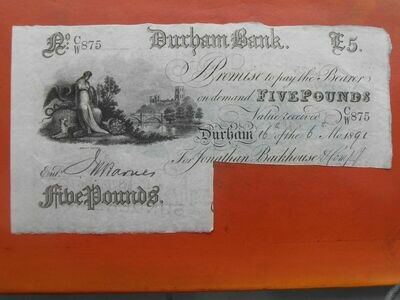 No. C/W 875 Durham Bank. £5.
I Promise to pay the Bearer
on demand FIVE POUNDS
Value received C/W 875
Durham 16th of the 6 Mo. 1891
For Jonathan Backhouse & Comp.y
Entd.
Five Pounds.